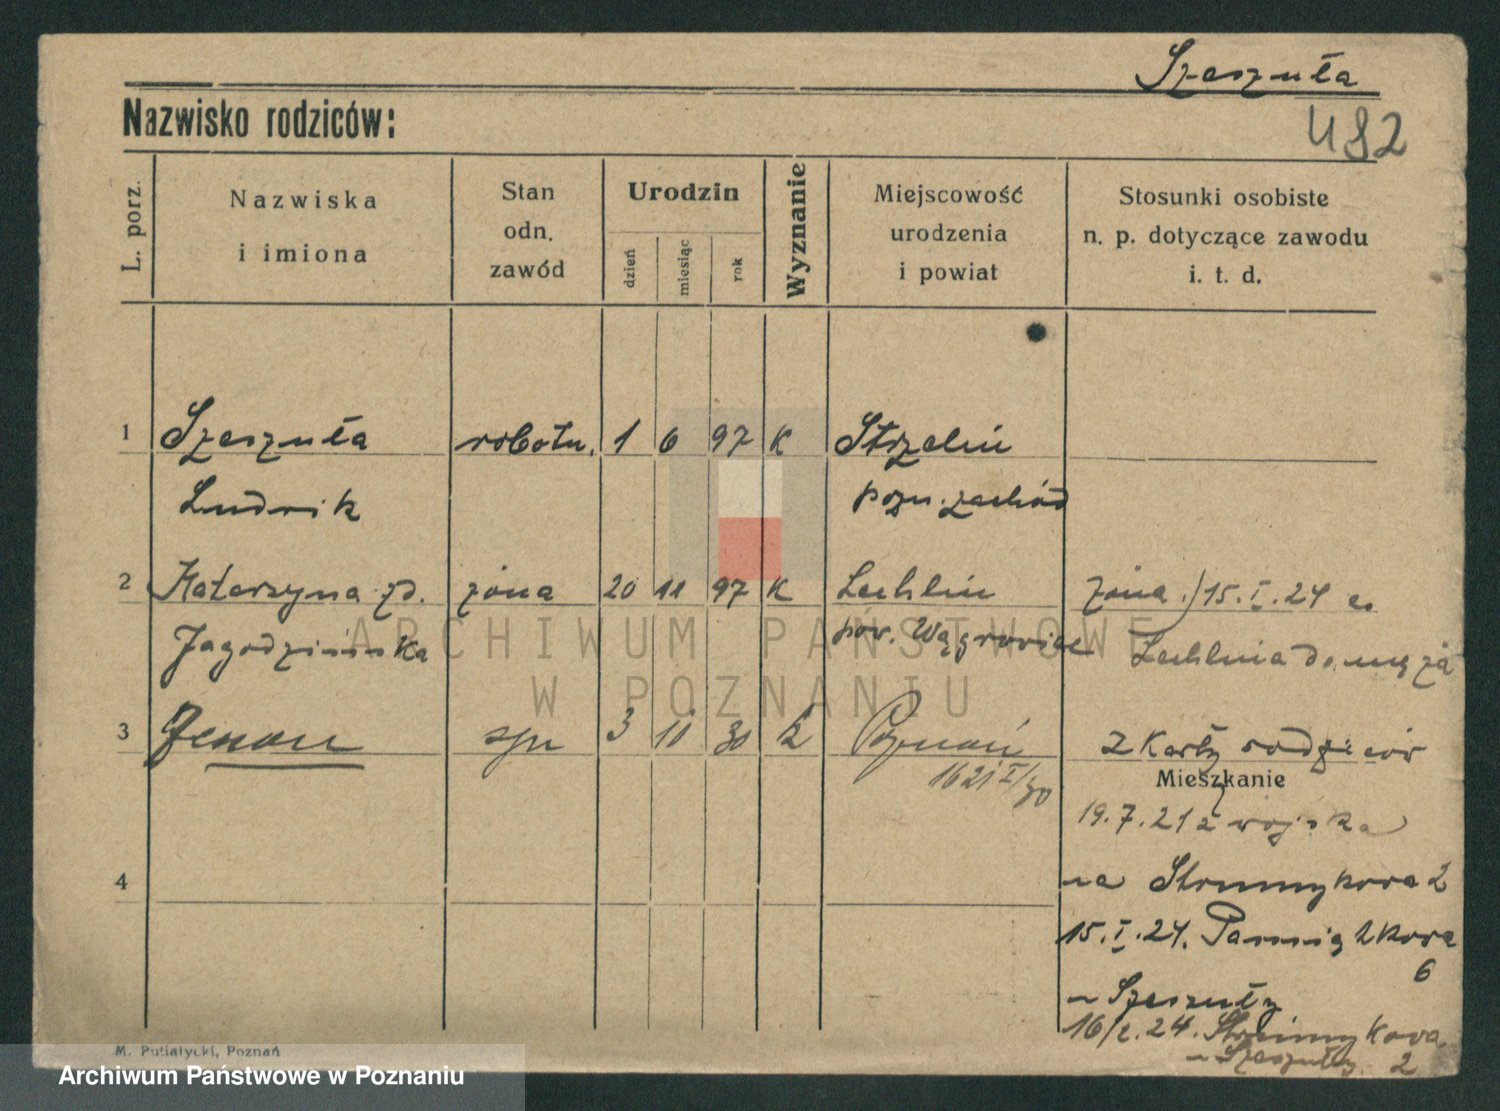 Szeszuła
Nazwisko rodziców:
482
L. porz.
Nazwiska
i imiona
Stan
odn.
zawód
Urodzin
dzień
miesiąc
rok
Wyznanie
Miejscowość
urodzenia
i powiat
Stosunki osobiste
n. p. dotyczące zawodu
i. t. d.
1 Szeszuła robotn. 1 6 97 K Strzelin
Ludwik pozn. zachód
2 Katarzyna zd. żona 20 11 97 K Lechlin żona 15.I.24
Jagodzińska pow. Wągrowiec Lechlina do męża
3 Zenon syn 3 11 30 k Poznań z Karty rodziców
Mieszkanie
19.7.21 z wojska
4
na Strumykowa 2
15.I.24.
6
u Szeszuły
16/I.24. Strumykowa
u Szeszuły 2
M. Putiatycki, Poznań
ARCHIWUM PAŃSTWOWE
W POZNANIU
Archiwum Państwowe w Poznaniu